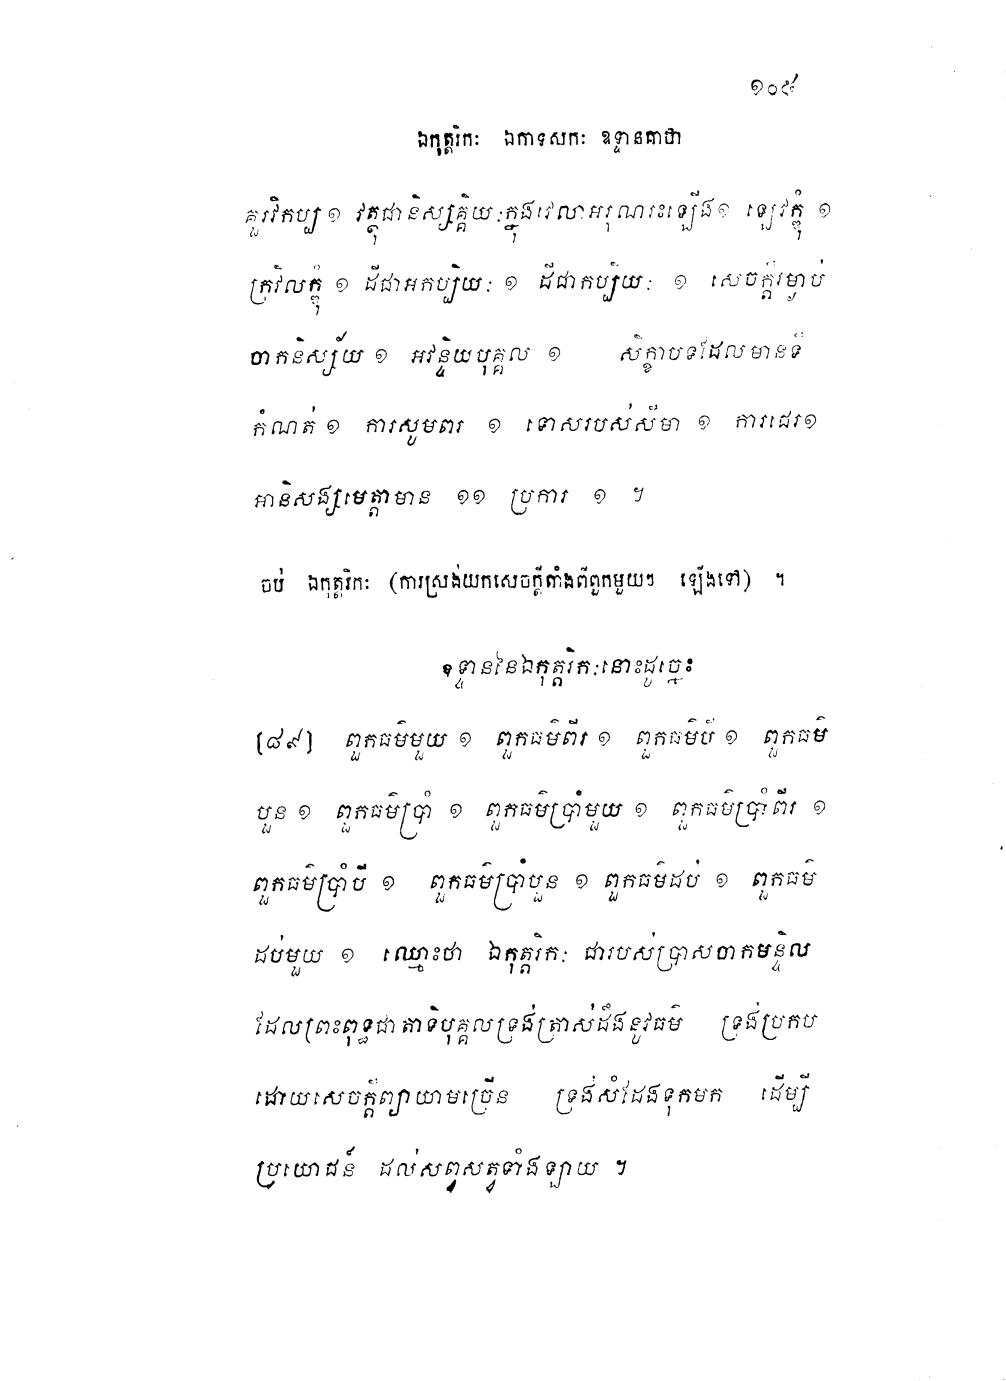 ១០៩
ឯកុត្តរិកៈ ឯកាទសកៈ ឧទ្ទានគាថា
គួរវិកប្ប ១ វត្ថុជានិស្សគ្គិយៈក្នុងវេលាអរុណរះឡើង១ ឡេវក្ពុំ ១
ក្រវិលក្ពុំ ១ ដីជាអកប្បិយៈ ១ ដីជាកប្បិយៈ ១ សេចក្តីរម្ងាប់
ចាកនិស្ស័យ ១ អវន្ទិយបុគ្គល ១ សិក្ខាបទដែលមានទី
កំណត់ ១ ការសូមពរ ១ ទោសរបស់សីមា ១ ការជេរ១
អានិសង្សមេត្តាមាន ១១ ប្រការ ១ ។
ចប់ ឯកុត្តរិកៈ (ការស្រង់យកសេចក្តីតាំងពីពួកមួយៗ ឡើងទៅ) ។
ឧទ្ទាននៃឯកុត្តរិកៈនោះដូច្នេះ
[៨៩] ពួកធម៌មួយ ១ ពួកធម៌ពីរ ១ ពួកធម៌បី ១ ពួកធម៌
បួន ១ ពួកធម៌ប្រាំ ១ ពួកធម៌ប្រាំមួយ ១ ពួកធម៌ប្រាំពីរ ១
ពួកធម៌ប្រាំបី ១ ពួកធម៌ប្រាំបួន ១ ពួកធម៌ដប់ ១ ពួកធម៌
ដប់មួយ ១ ឈ្មោះថា ឯកុត្តរិកៈ ជារបស់ប្រាសចាកមន្ទិល
ដែលព្រះពុទ្ធជាតាទិបុគ្គលទ្រង់ត្រាស់ដឹងនូវធម៌ ទ្រង់ប្រកប
ដោយសេចក្តីព្យាយាមច្រើន ទ្រង់សំដែងទុកមក ដើម្បី
ប្រយោជន៍ ដល់សព្វសត្វទាំងឡាយ ។